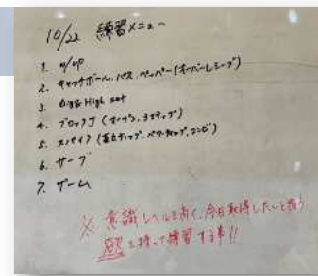 10/22 練習メニュー
1. W/UP
2. キャッチボール、パス、ペッパー(オーバーレシーブ)
3. Digg High set
4. ブロック (オープン、3ステップ)
5. スパイク (
6. サーブ
7. ゲーム
※ 意識レベルを高く、今日取得したいと思う
慾を持って練習する事!!